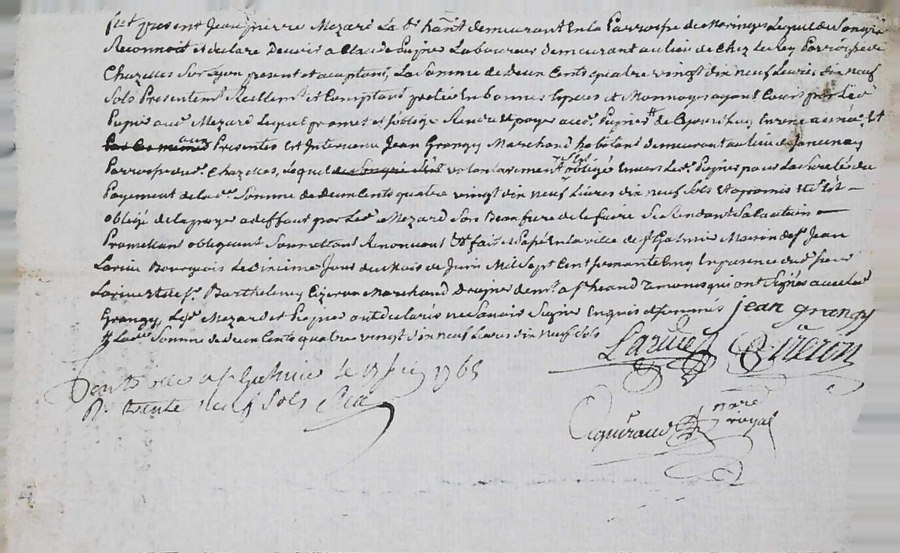 fut present Jean pierre Mezard La. hant demeurant En la Parroisse de Maringes Lequel de Son gré
Reconnoit et declare Devoir a Claude Pugnet Laboureur demeurant au lieu de chez le Roy Parroisse de
Chazelles Sur Lyon present et acceptant, La Somme de Deux Cents quatre vingt dix neuf Livres dix neuf
Sols Presentemt. Reellemt. et Comptant En bonnes Espèces et Monnoye ayant Cours par Led.
aud. Mezard Lequel promet et s'oblige Rendre et payer aud. En
Presentes Est Intervenu Jean Grangy Marchand demeurant au lieu de
Parroisse dud. Chazelles, Lequel volontairement s'est obligé Envers Led. pour La Sureté du
Payement de lad. Somme de deux Cents quatre vingt dix neuf Livres dix neuf Sols Et a promis Et s'est
obligé de la payer a deffaut par Led. Mezard Son Beaufrere de le faire Se Rendant Sa Caution
Promettant obligeant Soumettant Renonçant &. fait et Passé En la ville de St. Galmier Maison de Sr. Jean
Larüer Bourgeois Le dixieme Jour du Mois de Juin Mil Sept Cent Soixante Cinq En presence dud. Sieur
Larüer et de Sr. Barthelemy Cizeron Marchand Drapier demt. a St. heand Temoins qui ont Signés avec led.
Grangy, Led. Mezard et ont declarés ne Savoir Signer Enquis et Sommés jean grangy
# Ladite Somme de deux Cents quatre vingt dix neuf Livres dix neuf Sols
Larüer Cizeron
Controllé a St. Galmier le 1765
R. trente neuf Sols
nore.
royal